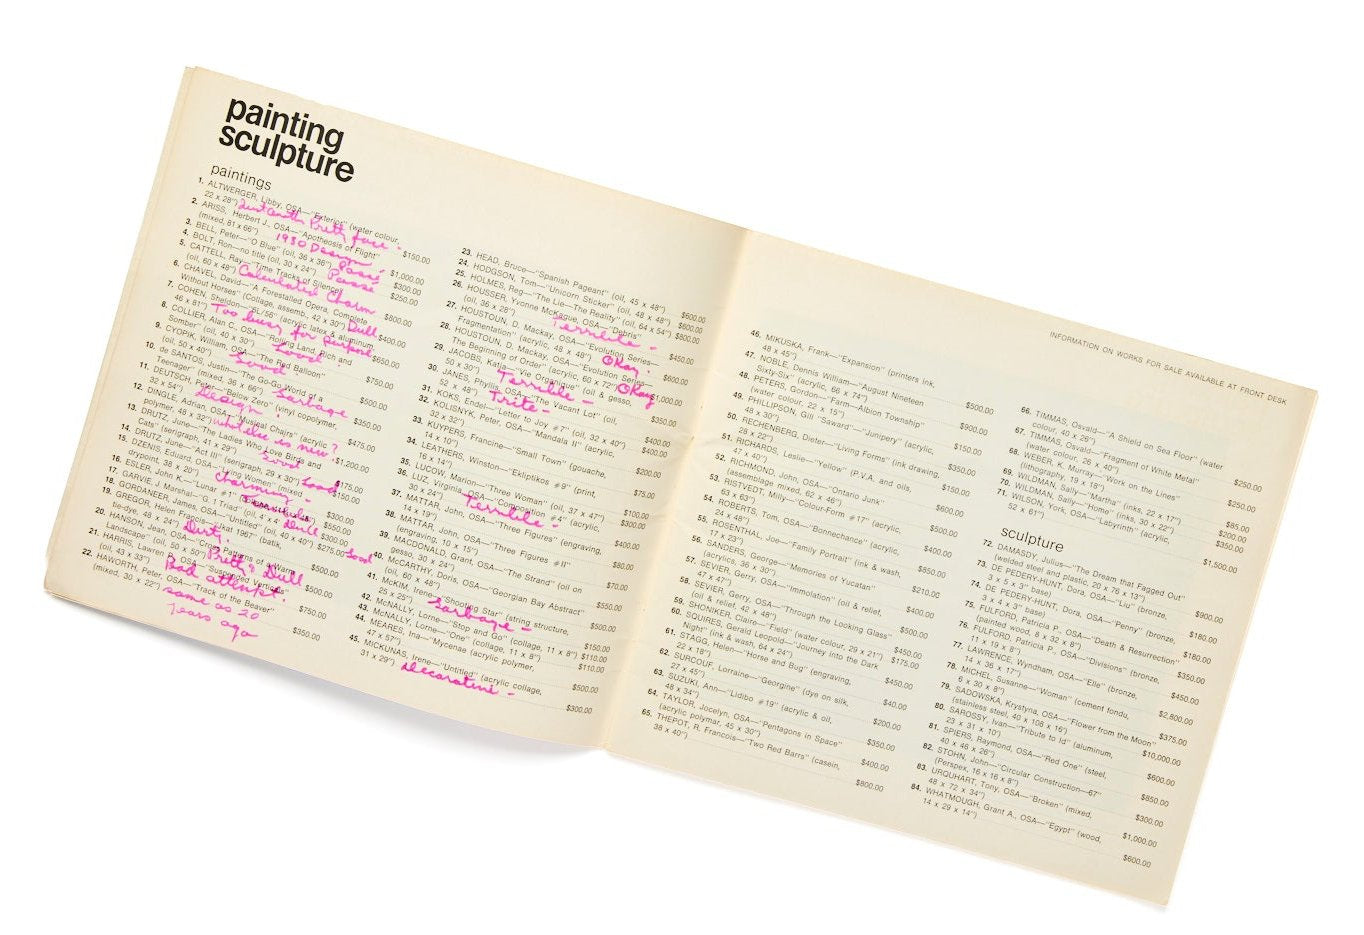 painting
sculpture
paintings
1. ALTWERGER, Libby, OSA—"Exterior" (water colour,
22 x 28") $150.00
Just another Pretty face -
2. ARISS, Herbert J., OSA—"Apotheosis of Flight"
(mixed, 81 x 66") $1,000.00
1930 Design -
3. BELL, Peter—"O Blue" (oil, 36 x 36") $300.00
Passé
4. BOLT, Ron—no title (oil, 30 x 24") $250.00
Passé
5. CATTELL, Ray—"Time Tracks of Silence"
(oil, 60 x 48") $800.00
Calculated Charm
6. CHAVEL, David—"A Forestalled Opera, Complete
Without Horses" (Collage, assemb., 42 x 30") $400.00
Dull
7. COHEN, Sheldon—"5L/56" (acrylic latex & aluminum,
46 x 81") $650.00
Too busy for purpose.
8. COLLIER, Alan C., OSA—"Rolling Land, Rich and
Somber" (oil, 40 x 30") $750.00
Good!
9. CYOPIK, William, OSA—"The Red Balloon"
(oil, 50 x 40") $500.00
Good
10. de SANTOS, Justin—"The Go-Go World of a
Teenager" (mixed, 36 x 66") $350.00
Garbage
11. DEUTSCH, Peter—"Below Zero" (vinyl copolymer,
32 x 54") $475.00
Design
12. DINGLE, Adrian, OSA—"Musical Chairs" (acrylic
polymer, 48 x 32") $1,200.00
what else is new?
13. DRUTZ, June—"The Ladies Who Love Birds and
Cats" (serigraph, 41 x 29") $175.00
Good
14. DRUTZ, June—"Act III" (serigraph, 29 x 30") $150.00
Good
15. DZENIS, Eduard, OSA—"Young Women" (mixed
drypoint, 38 x 20") $300.00
Charming
16. ESLER, John K.—"Lunar #1" $550.00
17. GARVIE, J. Marshall—"G. 1 Triad" (oil, 4' x 4' $300.00
Dull
18. GORDANEER, James—"Untitled" (oil, 40 x 40") $275.00
Good
19. GREGOR, Helen Francis—"Ikat 1967" (batik,
tie-dye, 48 x 24") $500.00
Dirty
20. HANSON, Jean, OSA—"Cross Patterns of a Warm
Landscape" (oil, 50 x 50") $500.00
Pretty Dull
21. HARRIS, Lawren P., OSA—"Suspended Verticals"
(oil, 43 x 33") $750.00
Bad attempt!
22. HAWORTH, Peter, OSA—"Track of the Beaver"
(mixed, 30 x 22") $350.00
same as 20
years ago
23. HEAD, Bruce—"Spanish Pageant" (oil, 45 x 48") $600.00
24. HODGSON, Tom—"Unicorn Sticker" (oil, 48 x 48") $600.00
25. HOLMES, Reg—"The Lie—The Reality" (oil, 64 x 54") $800.00
26. HOUSSER, Yvonne McKague, OSA—"Debris"
(oil, 36 x 28") $450.00
Terrible -
27. HOUSTOUN, D. Mackay, OSA—"Evolution Series—
Fragmentation" (acrylic, 48 x 48") $600.00
Okay.
28. HOUSTOUN, D. Mackay, OSA—"Evolution Series—
The Beginning of Order" (acrylic, 66 x 72") $1,000.00
Okay
29. JACOBS, Katja—"Vie Organique" (oil & gesso,
50 x 30")
Terrible -
30. JANES, Phyllis, OSA—"The Vacant Lot" (oil,
52 x 48") $400.00
Trite -
31. KOKS, Endel—"Letter to Joy #7" (oil, 32 x 40") $400.00
32. KOLISNYK, Peter, OSA—"Mandala II" (acrylic,
32 x 32") $200.00
33. KUYPERS, Francine—"Small Town" (gouache,
14 x 10") $75.00
34. LEATHERS, Winston—"Ekliptikos #9" (print,
16 x 14") $100.00
35. LUCOW, Marion—"Three Woman" (oil, 37 x 47") $300.00
36. LUZ, Virginia, OSA—"Composition #4" (acrylic,
30 x 24") $400.00
Terrible -
37. MATTAR, John, OSA—"Three Figures" (engraving,
14 x 19") $80.00
38. MATTAR, John, OSA—"Three Figures #II"
(engraving, 10 x 15") $70.00
39. MACDONALD, Grant, OSA—"The Strand" (oil on
gesso, 30 x 24") $550.00
40. McCARTHY, Doris, OSA—"Georgian Bay Abstract"
(oil, 60 x 48") $500.00
41. McKIM, Irene—"Shooting Star" (string structure,
25 x 25") $150.00
Garbage -
42. McNALLY, Lorne—"Stop and Go" (collage, 11 x 8") $110.00
43. McNALLY, Lorne—"One" (collage, 11 x 8") $110.00
44. MEARES, Ina—"Mycenae (acrylic polymer,
47 x 57") $500.00
45. MICKUNAS, Irene—"Untitled" (acrylic collage,
31 x 29") $300.00
Decorative -
INFORMATION ON WORKS FOR SALE AVAILABLE AT FRONT DESK
46. MIKUSKA, Frank—"Expansion" (printers ink,
48 x 45") $500.00
47. NOBLE, Dennis William—"August Nineteen
Sixty-Six" (acrylic, 66 x 74") $900.00
48. PETERS, Gordon—"Farm—Albion Township"
(water colour, 22 x 15") $150.00
49. PHILLIPSON, Gill "Saward"—"Junipery" (acrylic,
48 x 30") $350.00
50. RECHENBERG, Dieter—"Living Forms" (ink drawing,
28 x 22") $150.00
51. RICHARDS, Leslie—"Yellow" (P.V.A. and oils,
47 x 40") $600.00
52. RICHMOND, John, OSA—"Ontario Junk"
(assemblage mixed, 62 x 46") $600.00
53. RISTVEDT, Milly—"Colour-Form #17" (acrylic,
63 x 63") $500.00
54. ROBERTS, Tom, OSA—"Bonnechance" (acrylic,
24 x 48") $400.00
55. ROSENTHAL, Joe—"Family Portrait" (ink & wash,
17 x 23") $850.00
56. SANDERS, George—"Memories of Yucatan"
(acrylics, 36 x 30") $210.00
57. SEVIER, Gerry, OSA—"Immolation" (oil & relief,
47 x 47") $400.00
58. SEVIER, Gerry, OSA—"Through the Looking Glass"
(oil & relief, 42 x 48") $500.00
59. SHONIKER, Claire—"Field" (water colour, 29 x 21") $450.00
60. SQUIRES, Gerald Leopold—"Journey into the Dark
Night" (ink & wash, 64 x 24") $175.00
61. STAGG, Helen—"Horse and Bug" (engraving,
22 x 18") $450.00
62. SURCOUF, Lorraine—"Georgine" (dye on silk,
27 x 45") $40.00
63. SUZUKI, Ann—"Lidibo #19" (acrylic & oil,
48 x 34") $200.00
64. TAYLOR, Jocelyn, OSA—"Pentagons in Space"
(acrylic polymar, 45 x 30") $350.00
65. THEPOT, R. Francois—"Two Red Barrs" (casein,
38 x 40") $400.00
$800.00
66. TIMMAS, Osvald—"A Shield on Sea Floor" (water
colour, 40 x 26") $250.00
67. TIMMAS, Osvald—"Fragment of White Metal"
(water colour, 26 x 40") $250.00
68. WEBER, K. Murray—"Work on the Lines"
(lithography, 19 x 18") $85.00
69. WILDMAN, Sally—"Martha" (inks, 22 x 17") $200.00
70. WILDMAN, Sally—"Home" (inks, 30 x 22") $350.00
71. WILSON, York, OSA—"Labyrinth" (acrylic,
52 x 61½") $1,500.00
sculpture
72. DAMASDY, Julius—"The Dream that Fagged Out"
(welded steel and plastic, 20 x 76 x 6") $900.00
73. DE PEDERY-HUNT, Dora, OSA—"Liu" (bronze,
3 x 5 x 3" base) $180.00
74. DE PEDERY-HUNT, Dora, OSA—"Penny" (bronze,
3 x 4 x 3" base) $180.00
75. FULFORD, Patricia P., OSA—"Death & Resurrection"
(painted wood, 8 x 32 x 8") $350.00
76. FULFORD, Patricia P., OSA—"Divisions" (bronze,
11 x 19 x 8") $450.00
77. LAWRENCE, Wyndham, OSA—"Elle" (bronze,
14 x 36 x 17") $2,800.00
78. MICHEL, Susanne—"Woman" (cement fondu,
6 x 30 x 8") $375.00
79. SADOWSKA, Krystyna, OSA—"Flower from the Moon"
(stainless steel, 40 x 108 x 16") $10,000.00
80. SAROSSY, Ivan—"Tribute to Id" (aluminum,
23 x 31 x 10") $600.00
81. SPIERS, Raymond, OSA—"Red One" (steel,
40 x 46 x 26") $850.00
82. STOHN, John—"Circular Construction—67"
(Perspex, 16 x 16 x 8") $300.00
83. URQUHART, Tony, OSA—"Broken" (mixed,
48 x 72 x 34") $1,000.00
84. WHATMOUGH, Grant A., OSA—"Egypt" (wood,
14 x 29 x 14") $600.00